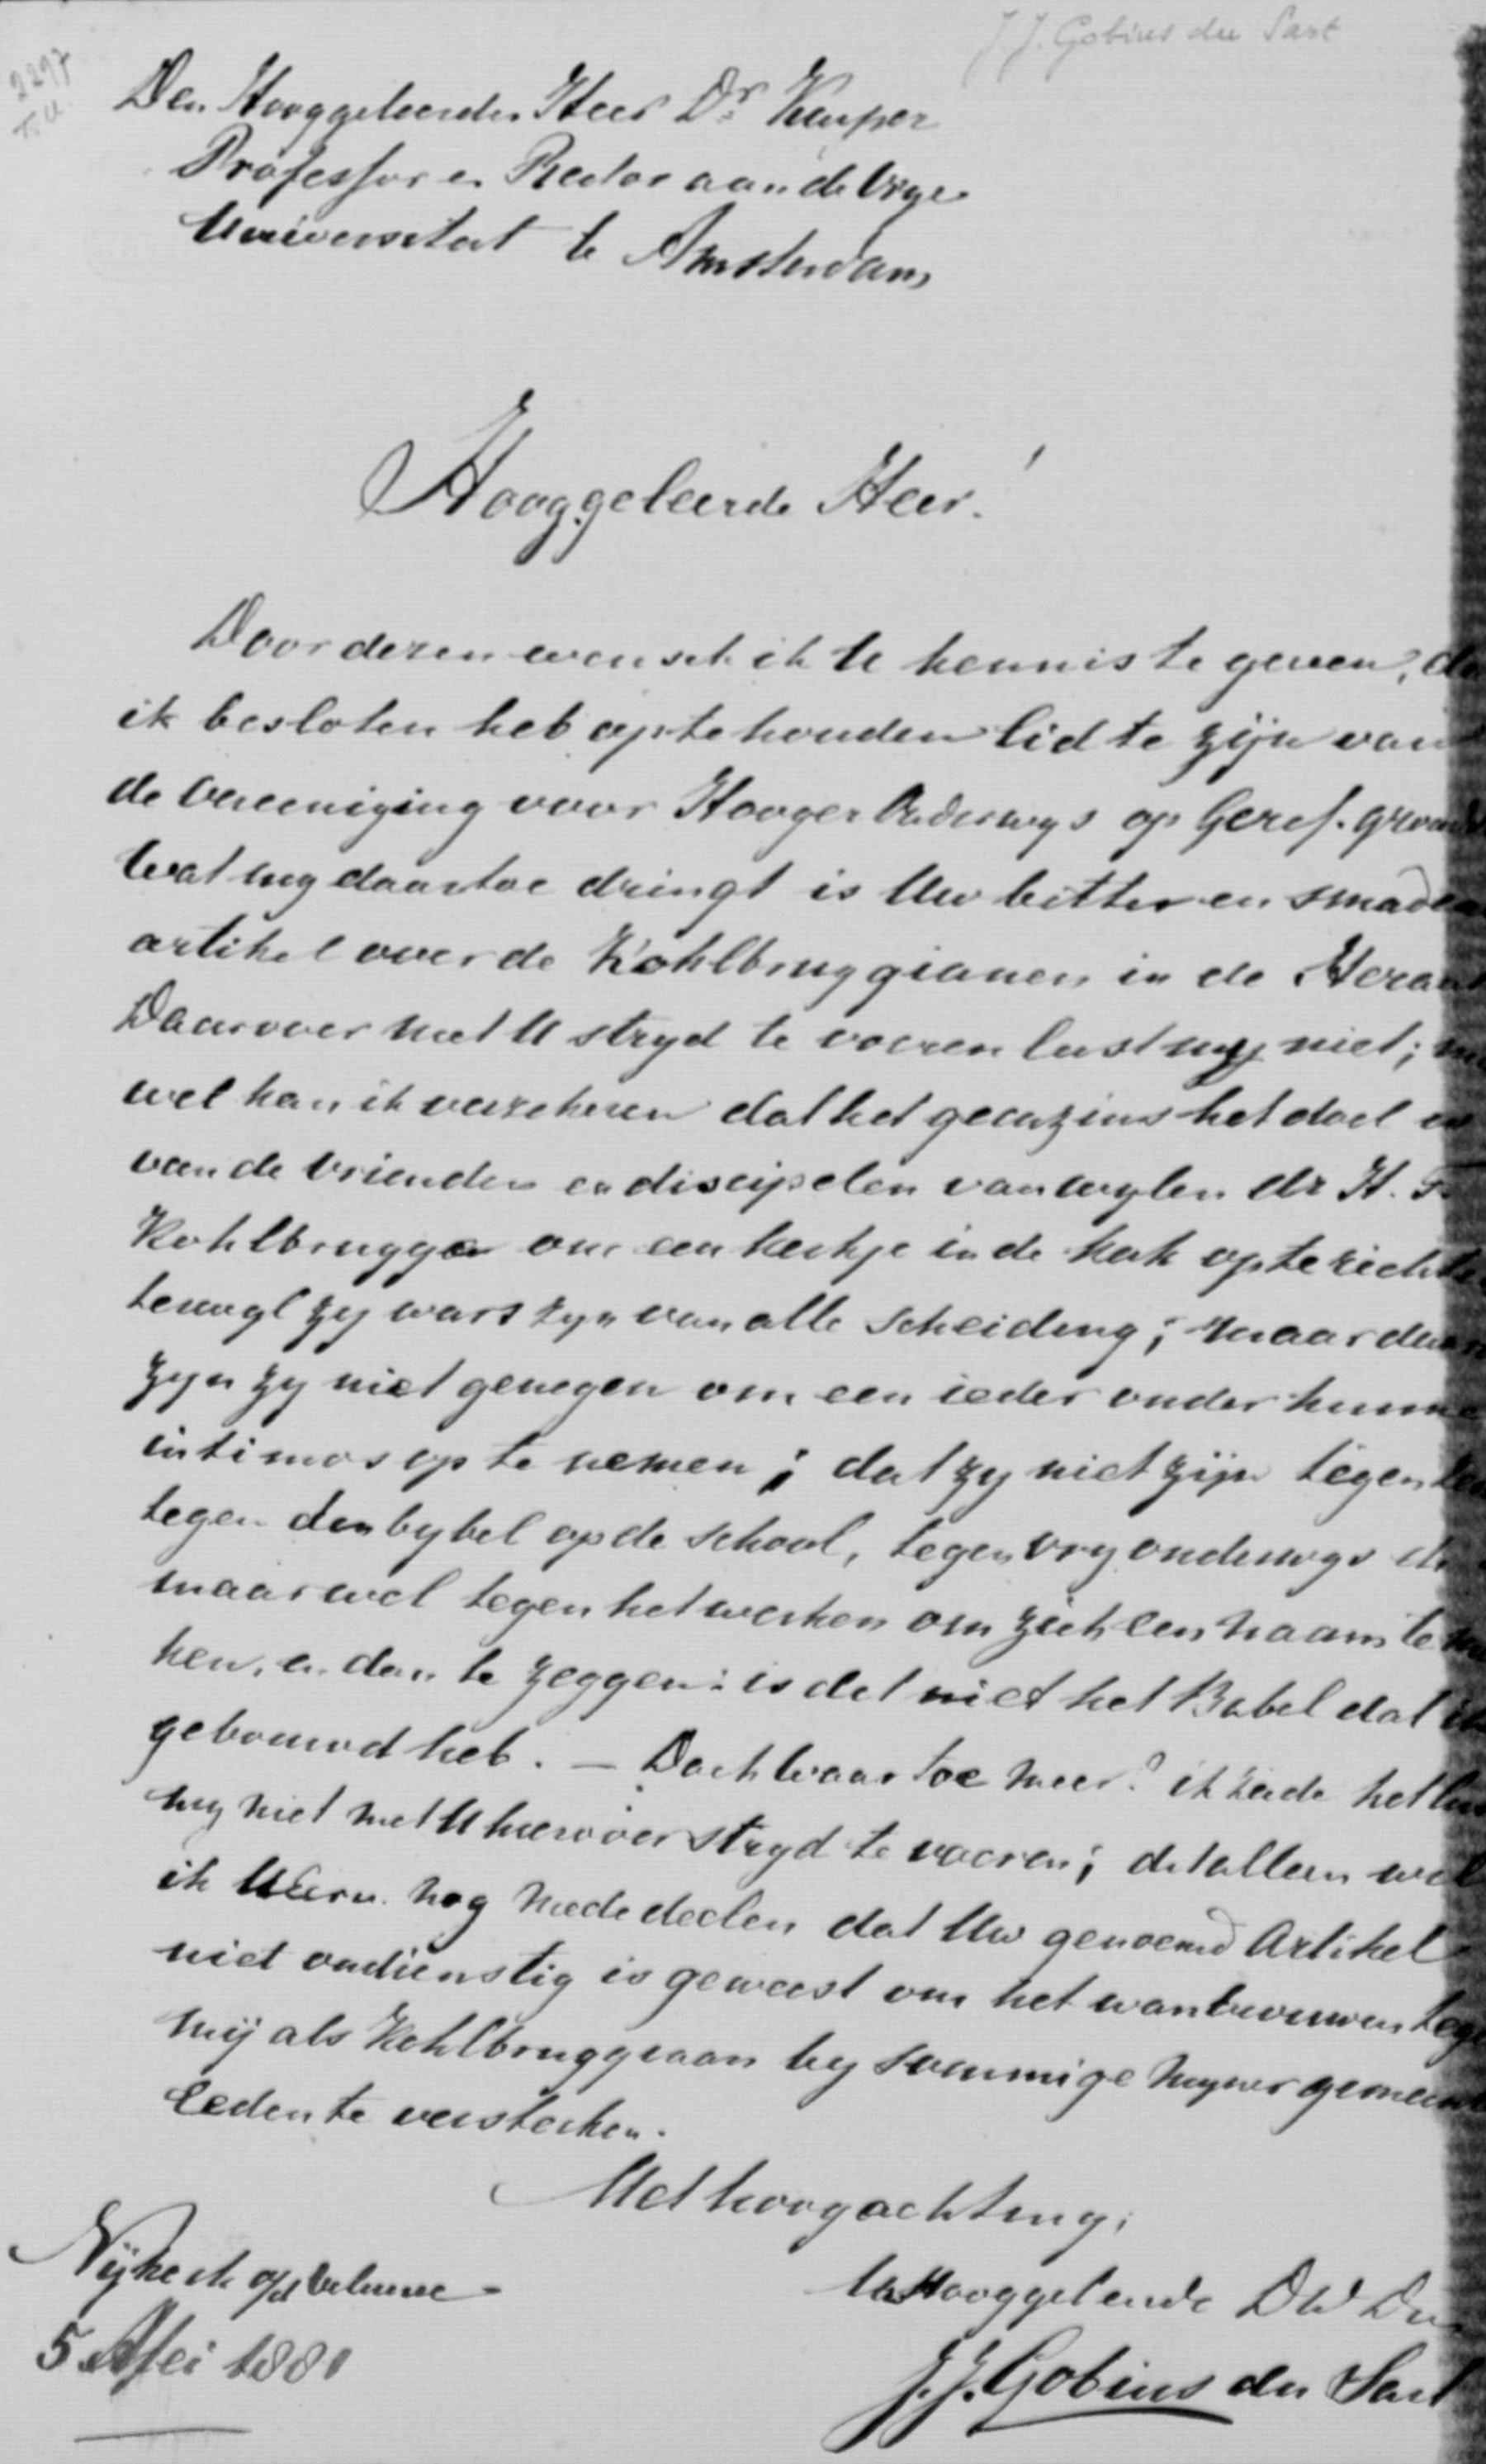 J. J. Gobius du Sart
2297
Den Hooggeleerden Heer Dr Kuyper
Professor en Rector aan de Vrye
Universiteit te Amsterdam
Hooggeleerde Heer!
Door dezen wensch ik U kennis te geven, da
ik besloten heb op te houden lid te zijn van
de Vereeniging voor Hooger Onderwys op Geref. grond
Wat my daartoe dringt is Uw bitter en smaden
artikel over de Kohlbruggianen in de Herau
Daarover met U stryd te voeren lust my niet; ma
wel kan ik verzekeren dat het geenzins het doel is
van de vrienden en discipelen van wylen dr H. F.
Kohlbrugge om een kerkje in de kerk op te richte
terwyl zy wars zyn van alle scheiding; maar daar
zyn zy niet genegen om een ieder onder hunne
intimos op te nemen; dat zy niet zijn tegen
tegen den bybel op de school, tegen vry onderwys etc
maar wel tegen het werken om zich een naam te ma
ken, en dan te zeggen: is dat niet het Babel dat ik
gebouwd heb. — Doch waartoe meer? ik zeide het lus
my niet met U hierover stryd te voeren; dit alleen wil
ik UEerw. nog mededeelen dat Uw genoemd Artikel
niet ondienstig is geweest om het wantrouwen tege
mij als Kohlbruggiaan by sommige myner gemeent
leden te versterken.
Met hoogachting,
Nijkerk op/d Veluwe
Uw Hooggeleerde DW Die
5 Mei 1881
J. J. Gobius du Sart